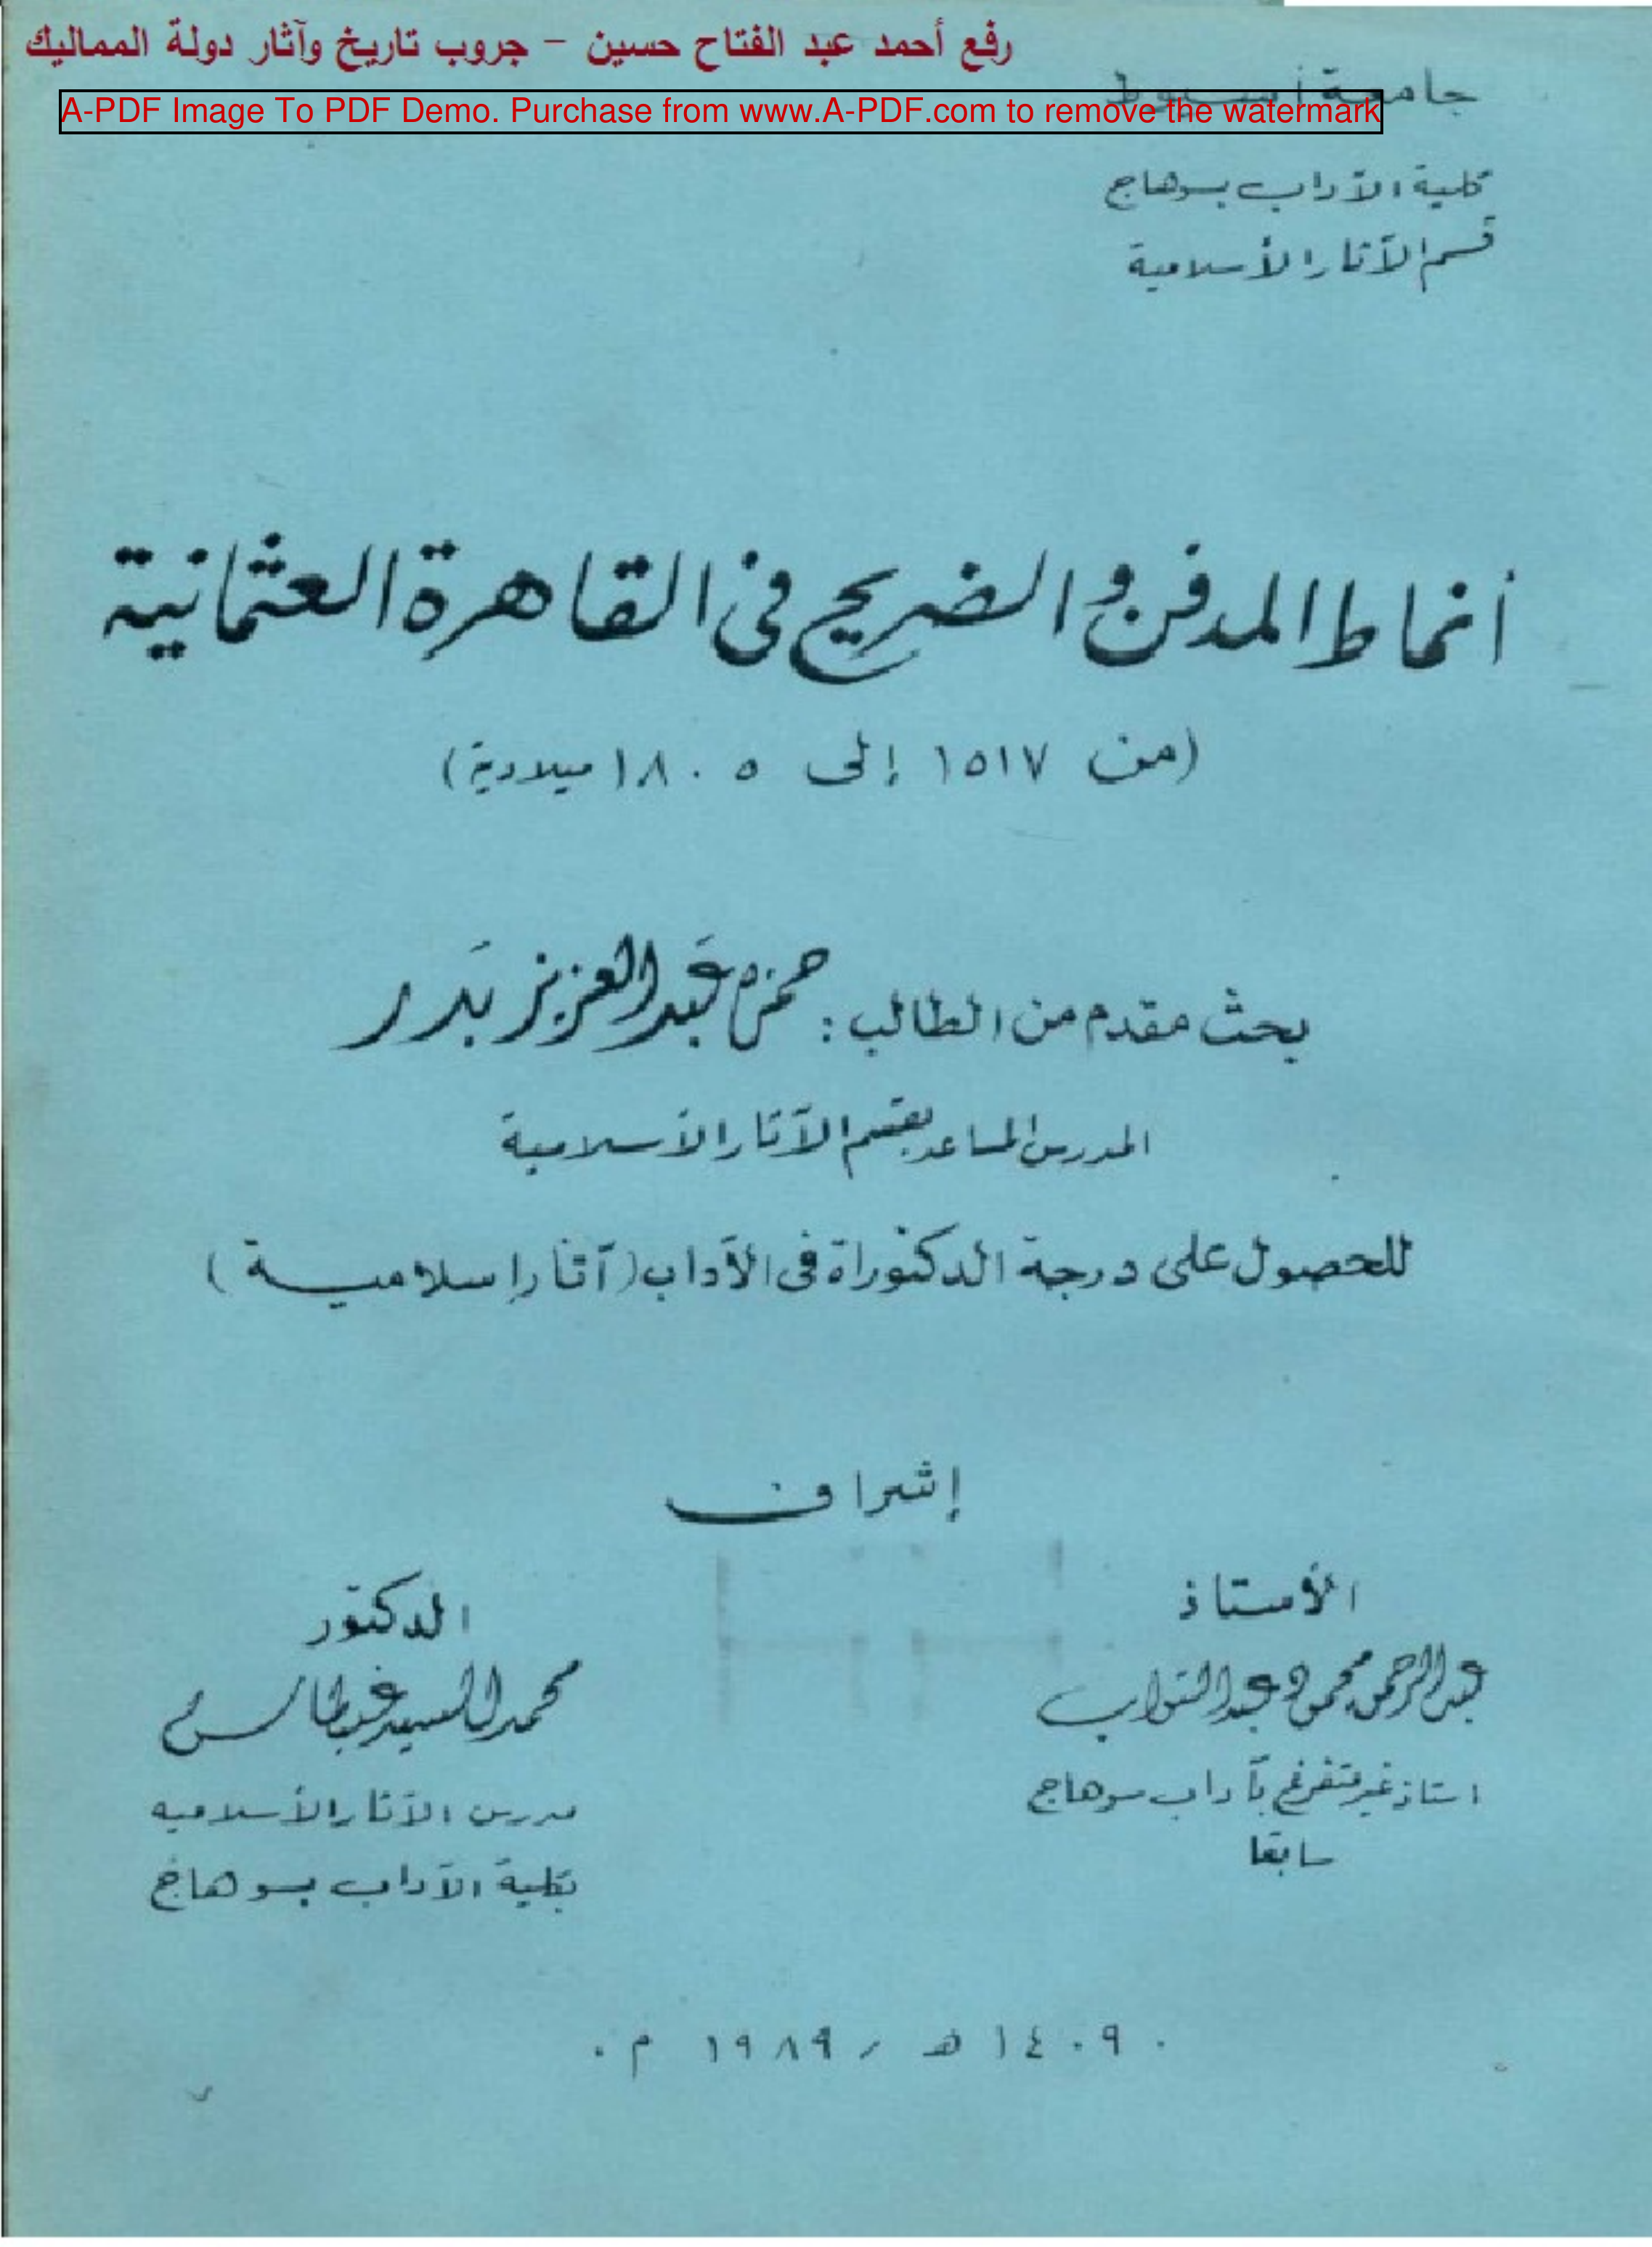 رفع أحمد عبد الفتاح حسين - جروب تاريخ وآثار دولة المماليك
جامعة أسيوط
A-PDF Image To PDF Demo. Purchase from www.A-PDF.com to remove the watermark
كلية الآداب بسوهاج
قسم الآثار الأسلامية
أنماط المدفن والضريح في القاهرة العثمانية
(من ١٥١٧ إلى ١٨٠٥ ميلادية)
بحث مقدم من الطالب: حمزة عبد العزيز بدر
المدرس المساعد بقسم الآثار الأسلامية
للحصول على درجة الدكتوراة فى الآداب (آثار إسلامية)
إشراف
الأستاذ
عبد الرحمن محمود عبد التواب
استاذ غير متفرغ بآداب سوهاج
سابقا
الدكتور
محمد السيد غيطاس
مدرس الآثار الأسلاميه
بكلية الآداب بسوهاج
١٤٠٩ هـ / ١٩٨٩ م.